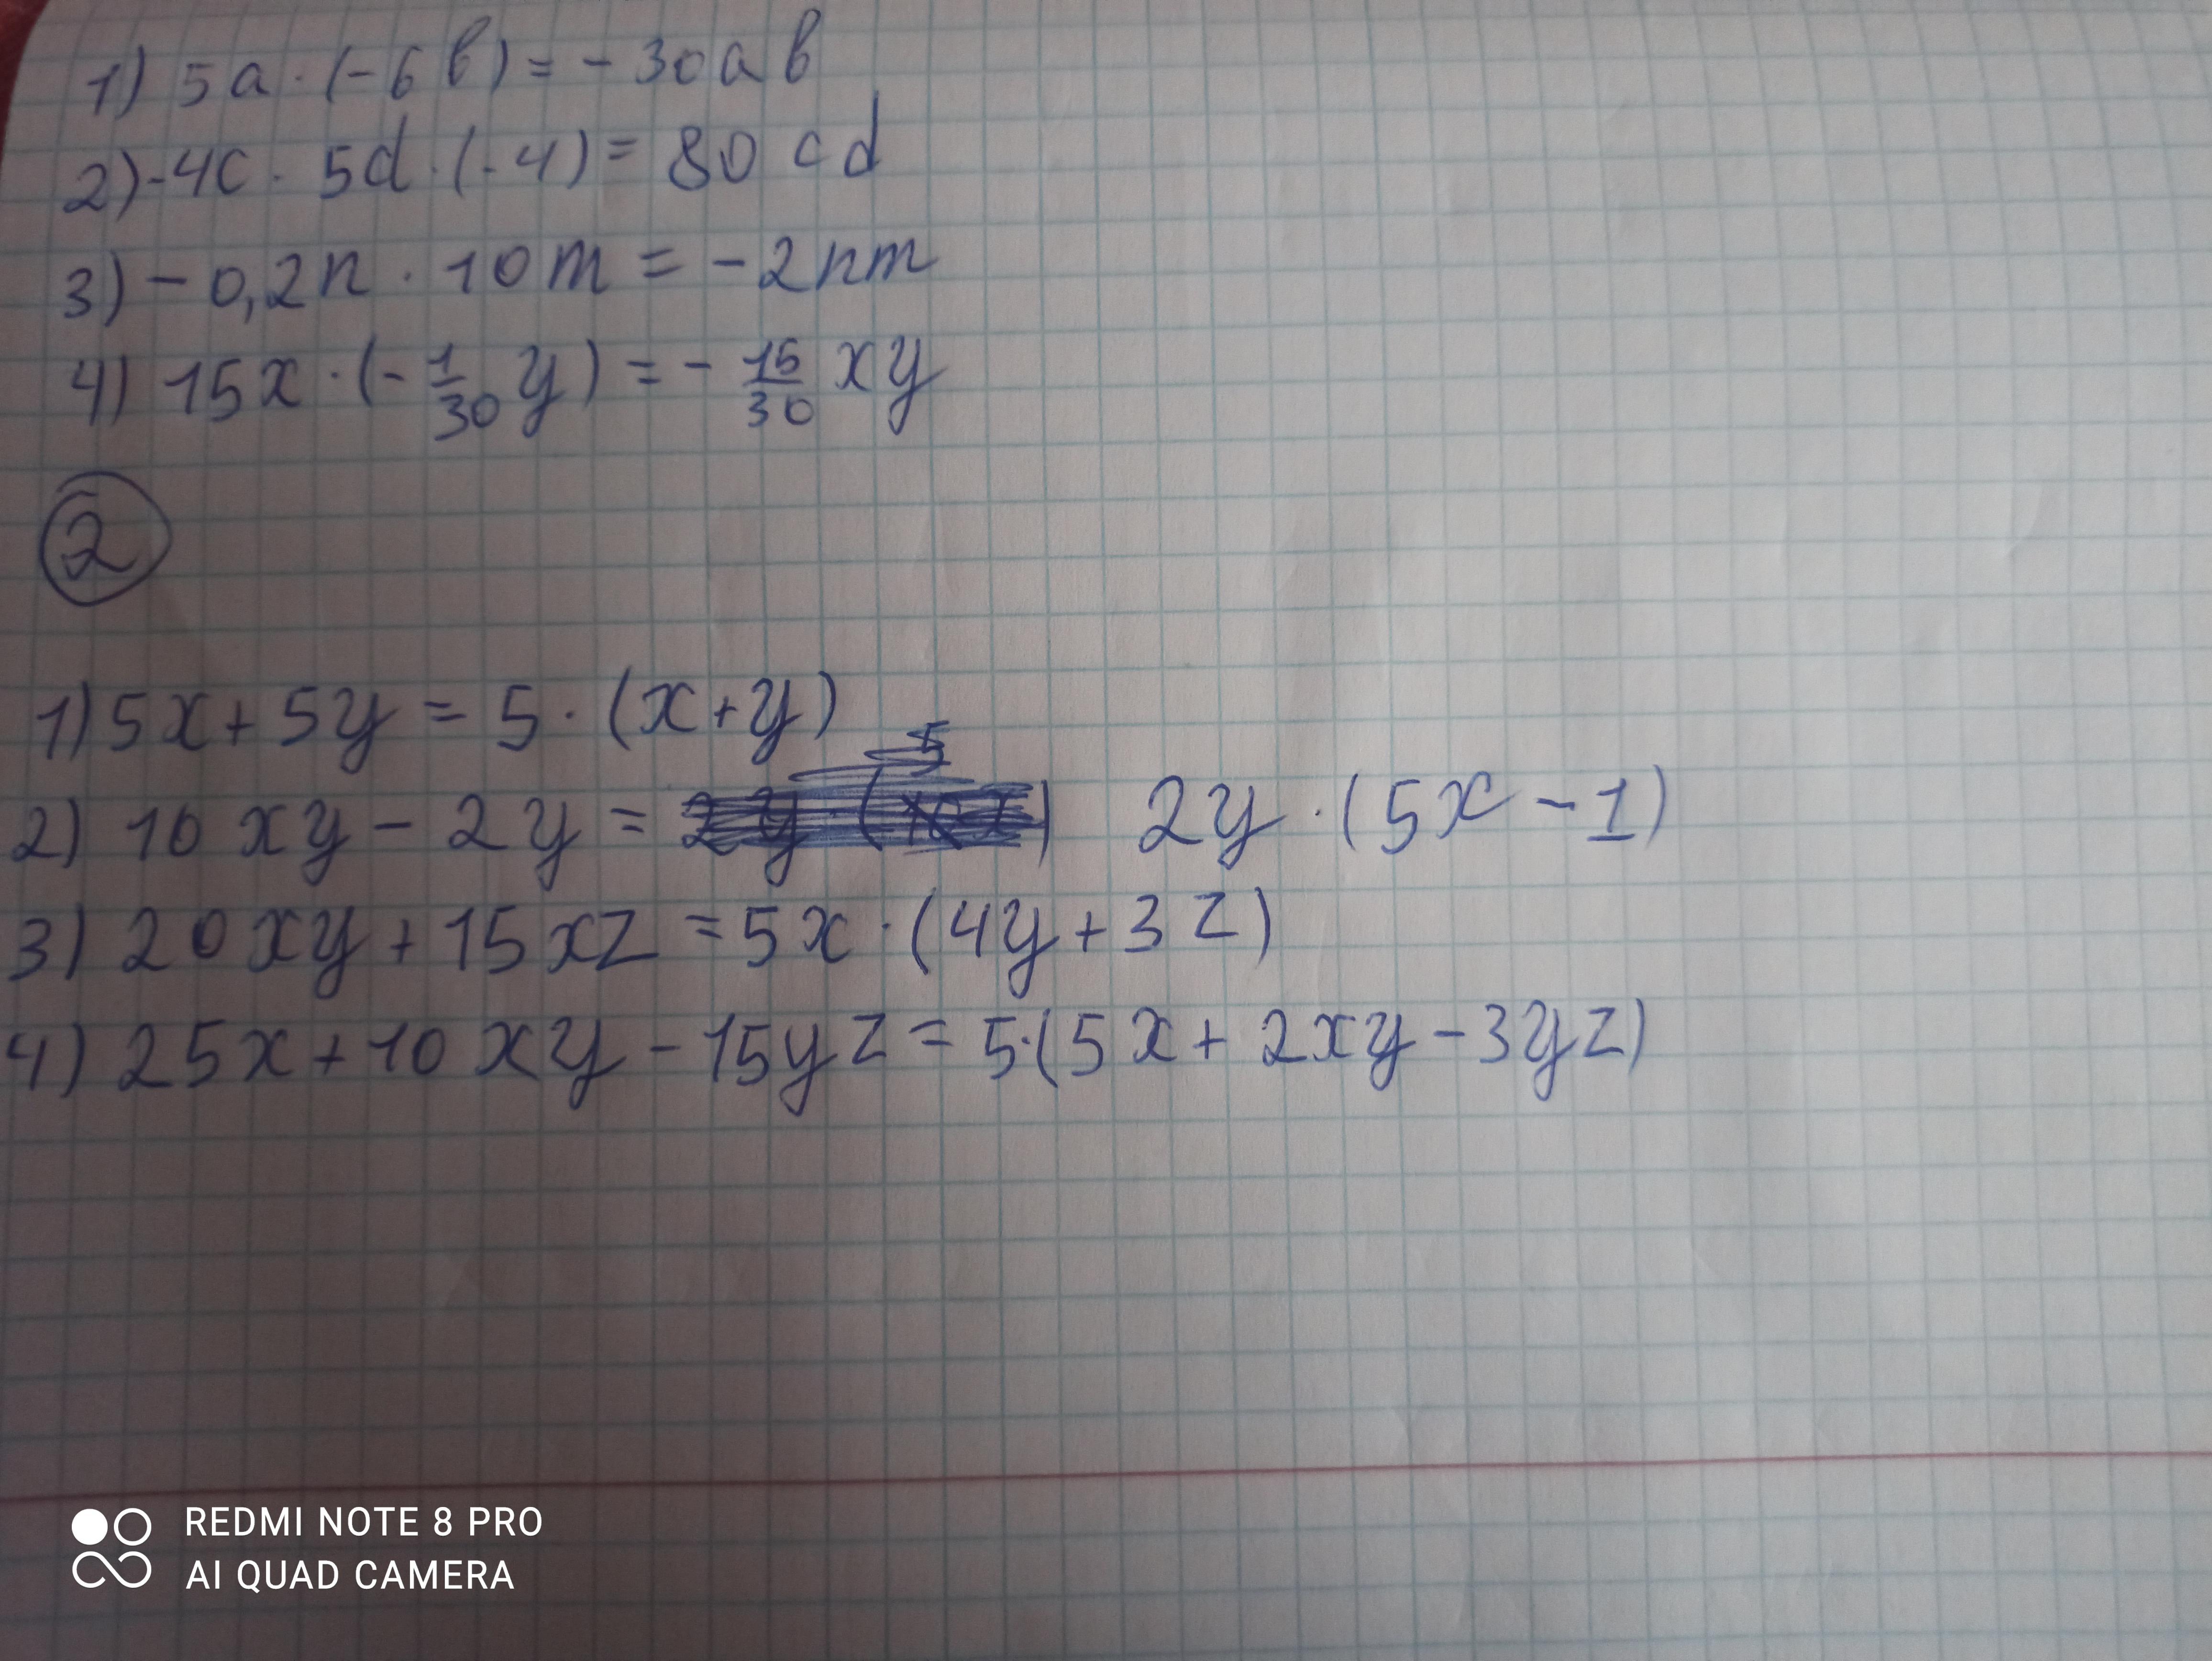 1) 5a · (-6b) = -30ab
2) -4c · 5d · (-4) = 80cd
3) -0,2n · 10m = -2nm
4) 15x · (-1/30 y) = -15/30 xy
2
1) 5x + 5y = 5 · (x+y)
2) 10xy - 2y = 2y · (5x - 1)
3) 20xy + 15xz = 5x · (4y + 3z)
4) 25x + 10xy - 15yz = 5·(5x + 2xy - 3yz)
REDMI NOTE 8 PRO
AI QUAD CAMERA